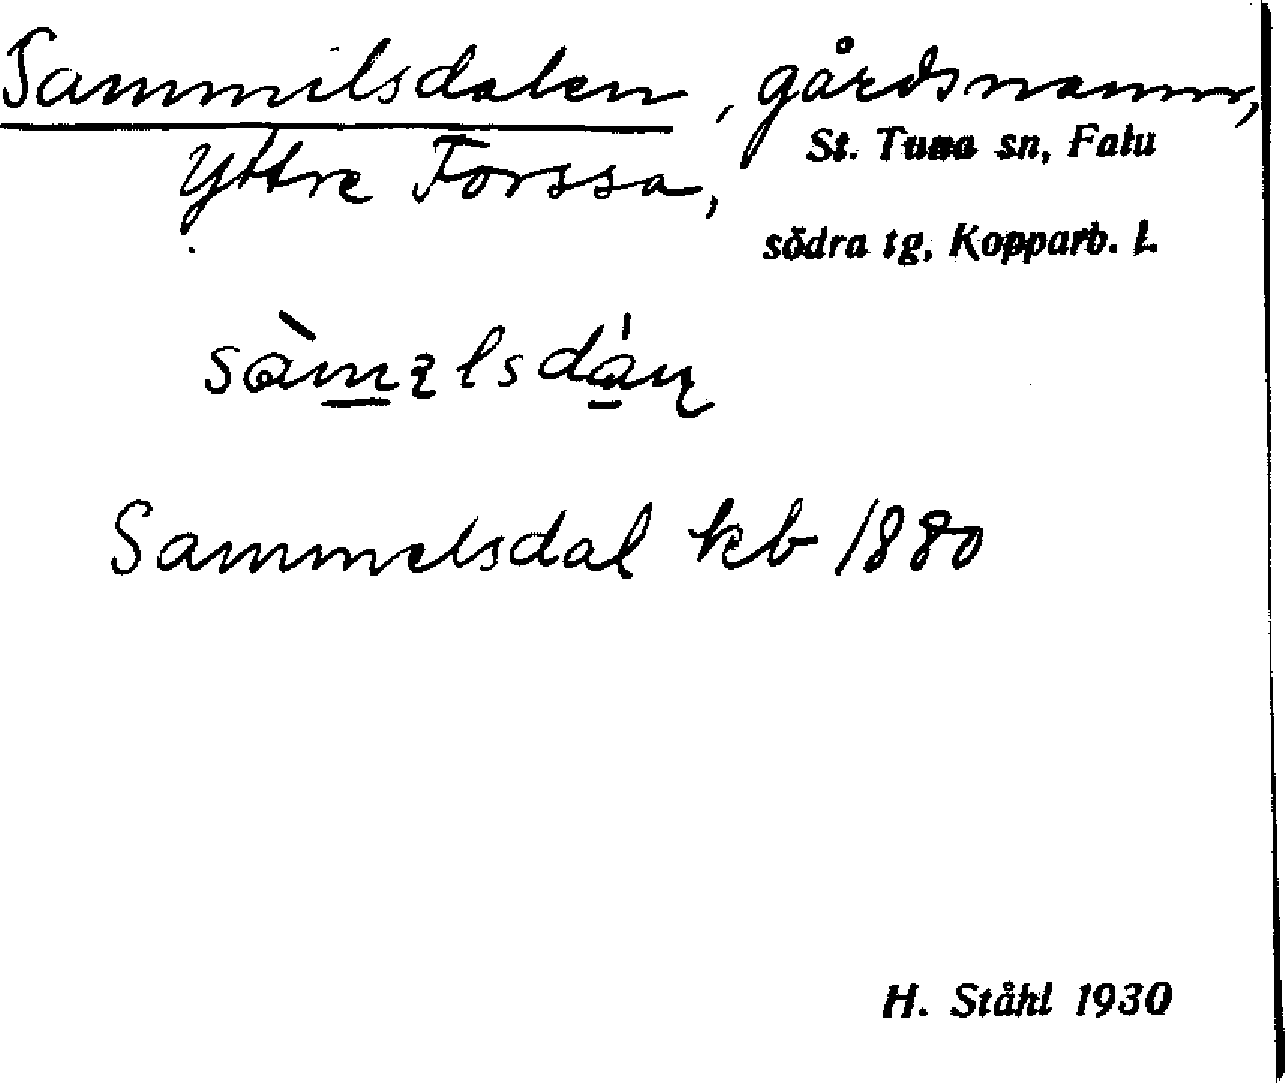 Sammilsdalen, gårdsnamn,
Yttre Forssa, St. Tuna sn, Falu
södra tg, Kopparb. l.
Sammelsdal kb 1880
H. Ståhl 1930